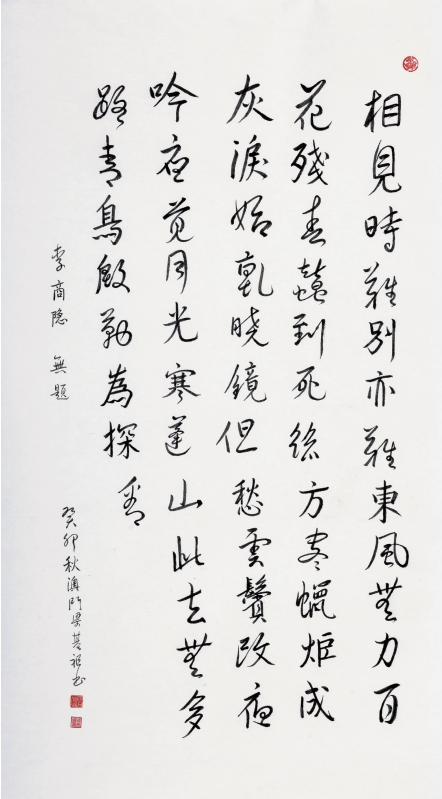 相見時難別亦難東風無力百
花殘春蠶到死絲方盡蠟炬成
灰淚始乾曉鏡但愁雲鬢改夜
吟應覺月光寒蓬山此去無多
路青鳥殷勤為探看
李商隐 無題
癸卯秋澳門梁書